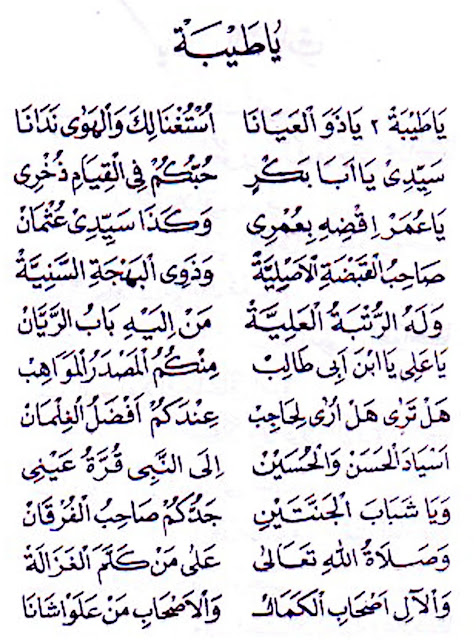 يَاطَيْبَةْ
يَاطَيْبَةْ ٢ يَاذَوَ الْعَيَانَا اُسْتُغْنَالِكَ وَالْهَوٰى نَدَانَا
سَيِّدِىْ يَا اَبَا بَكْرٍ حُبُّكُمْ فِى الْقِيَامِ ذُخْرِى
يَاعُمَرْ اِقْضِهِ بِعُمْرِى وَكَذَا سَيِّدِىْ عُثْمَانْ
صَاحِبُ الْقَبْضَةِ الْاَصْلِيَّةْ وَذَوِى الْبَهْجَةِ السَّنِيَّةْ
وَلَهُ الرُّتْبَةُ الْعَلِيَّةْ مَنْ اِلَيْهِ بَابُ الرَّيَّانْ
يَا عَلِى يَا ابْنَ اَبِى طَالِبْ مِنْكُمُ الْمَصْدَرُ الْمَوَاهِبْ
هَلْ تَرٰى هَلْ اُرٰى لِحَاجِبْ عِنْدَكُمْ اَفْضَلُ الْغِلْمَانْ
اَسْيَادَ الْحَسَنْ وَالْحُسَيْنْ اِلَى النَّبِى قُرَّةُ عَيْنِى
وَيَا شَبَابَ الْجَنَّتَيْنِ جَدُّكُمْ صَاحِبُ الْفُرْقَانْ
وَصَلَاةُ اللهِ تَعَالٰى عَلٰى مَنْ كَلَّمَ الْغَزَالَةْ
وَالْآلِ اَصْحَابِ الْكَمَالْ وَالْاَصْحَابِ مَنْ عَلَوْاشَانَا